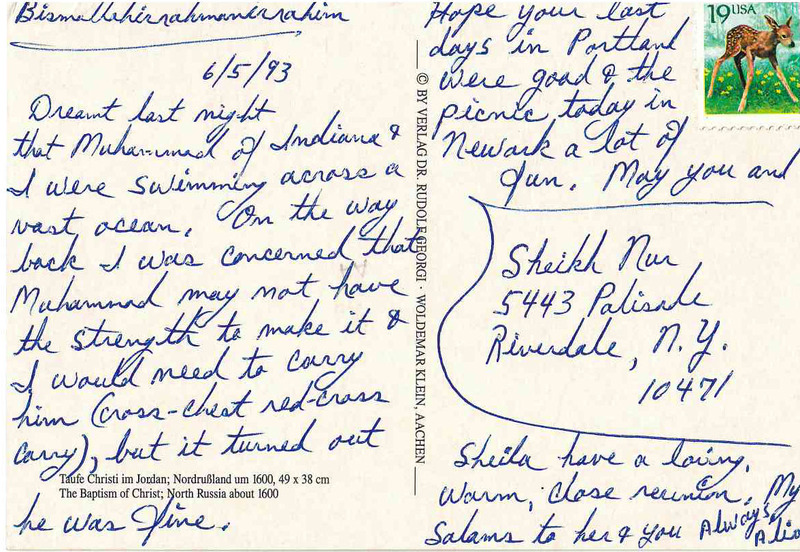 Bismallehirrahmanerrahim
6/5/93
Dreamt last night
that Muhammad of Indiana &
I were swimming across a
vast ocean. On the way
back I was concerned that
Muhammad may not have
the strength to make it &
I would need to carry
him (cross-chest red-cross
carry), but it turned out
Taufe Christi im Jordan; Nordrußland um 1600, 49 x 38 cm
The Baptism of Christ; North Russia about 1600
he was fine.
© BY VERLAG DR. RUDOLF GEORGI · WOLDEMAR KLEIN, AACHEN
Hope your last
days in Portland
were good & the
picnic today in
Newark a lot of
fun. May you and
19USA
Sheikh Nur
5443 Palisade
Riverdale, N.Y.
10471
Sheila have a loving,
warm, close reunion. My
Salams to her & you Always,